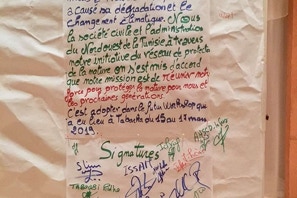 3. Causé sa dégradation et le
changement climatique. Nous
la société civile et l'administration
du Nord ouest de la Tunisie à travers
notre initiative du réseau de protection
de la nature on s'est mis d'accord
que notre mission est de Réunir nos
force pour protéger la nature pour nous et
les prochaines générations.
C'est adopter dans le futu Workshop que
a eu lieu à Tabarka du 15 au 17 mars
2019
Signatures
ISSAM